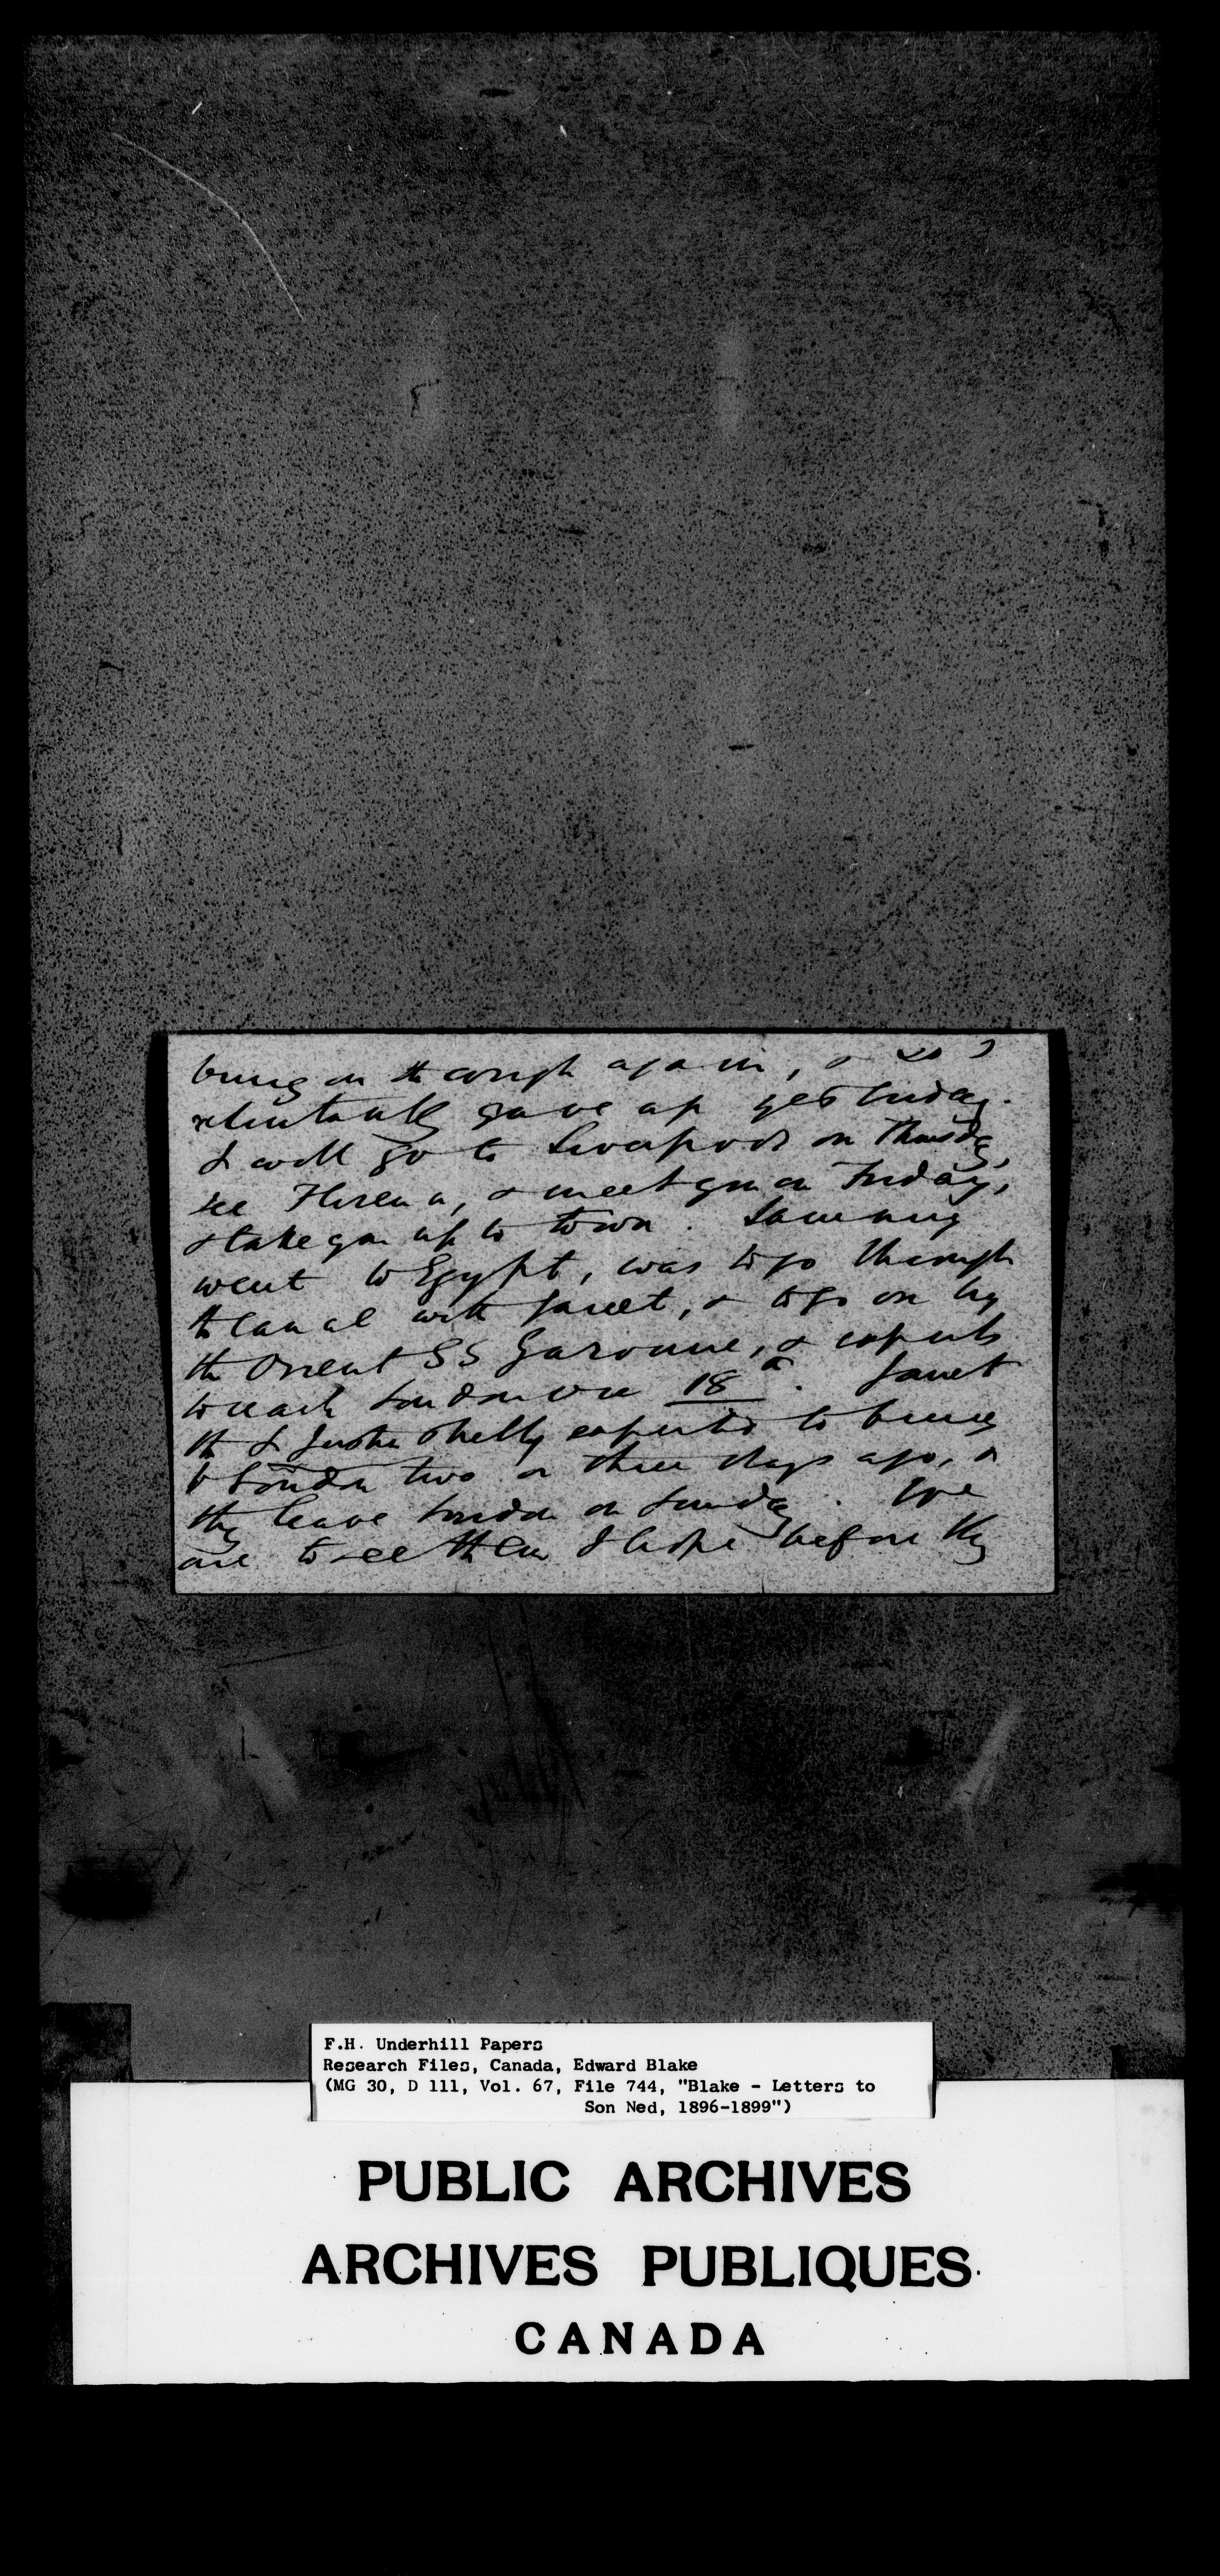 bring on the cough again, & so I
reluctantly gave up yesterday.
I will go to Liverpool on Thursday,
see Florence, & meet you on Friday,
& take you up to town.
went to Egypt, was to go through
the canal with Janet, & to go on by
the Orient SS Garonne, & expects
to reach London on 18th. Janet
expected to
London two or three days ago, &
they leave London on Sunday. We
are to see them I hope before they
F.H. Underhill Papers
Research Files, Canada, Edward Blake
(MG 30, D 111, Vol. 67, File 744, "Blake - Letters to
Son Ned, 1896-1899")
PUBLIC ARCHIVES
ARCHIVES PUBLIQUES
CANADA